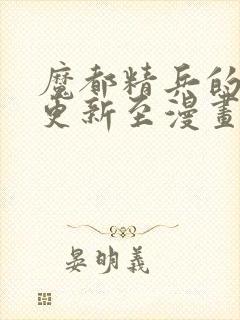 魔都精兵的
更新至漫畫
晏明義